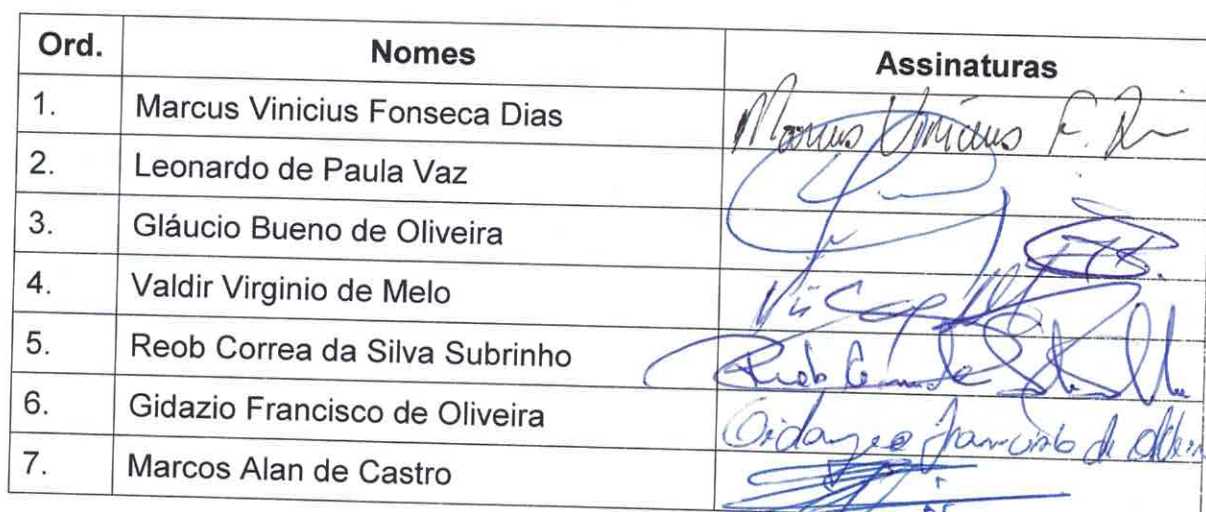 Ord. Nomes Assinaturas
1. Marcus Vinicius Fonseca Dias Marcus Vinicius F.
2. Leonardo de Paula Vaz
3. Gláucio Bueno de Oliveira
4. Valdir Virginio de Melo
5. Reob Correa da Silva Subrinho Reob
6. Gidazio Francisco de Oliveira Francisco de
7. Marcos Alan de Castro